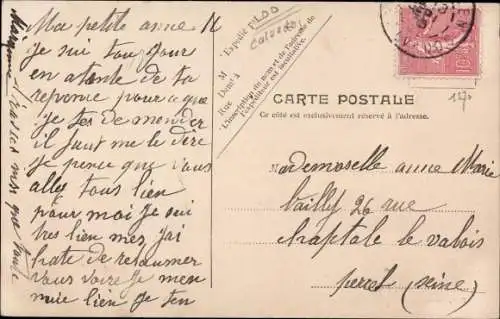 Ma petite anne
je sui tou jour
en atente de ta
reponce pour ce que
je tes de mander
il faut me le dire
je pence que vous
alley tous bien
pour moi je sui
tres bien mez j'ai
hate de retourner
vous voire je men
nuie bien je ten
Expédié
PLOD
Calvados
M
Demt à
Rue
L'inscription du nom et de l'adresse de
l'expéditeur est facultative.
CARTE POSTALE
Ce côté est exclusivement réservé à l'adresse.
10
Mademoselle anne Marie
bailly 26 rue
chaptale le valois
perret (seine)